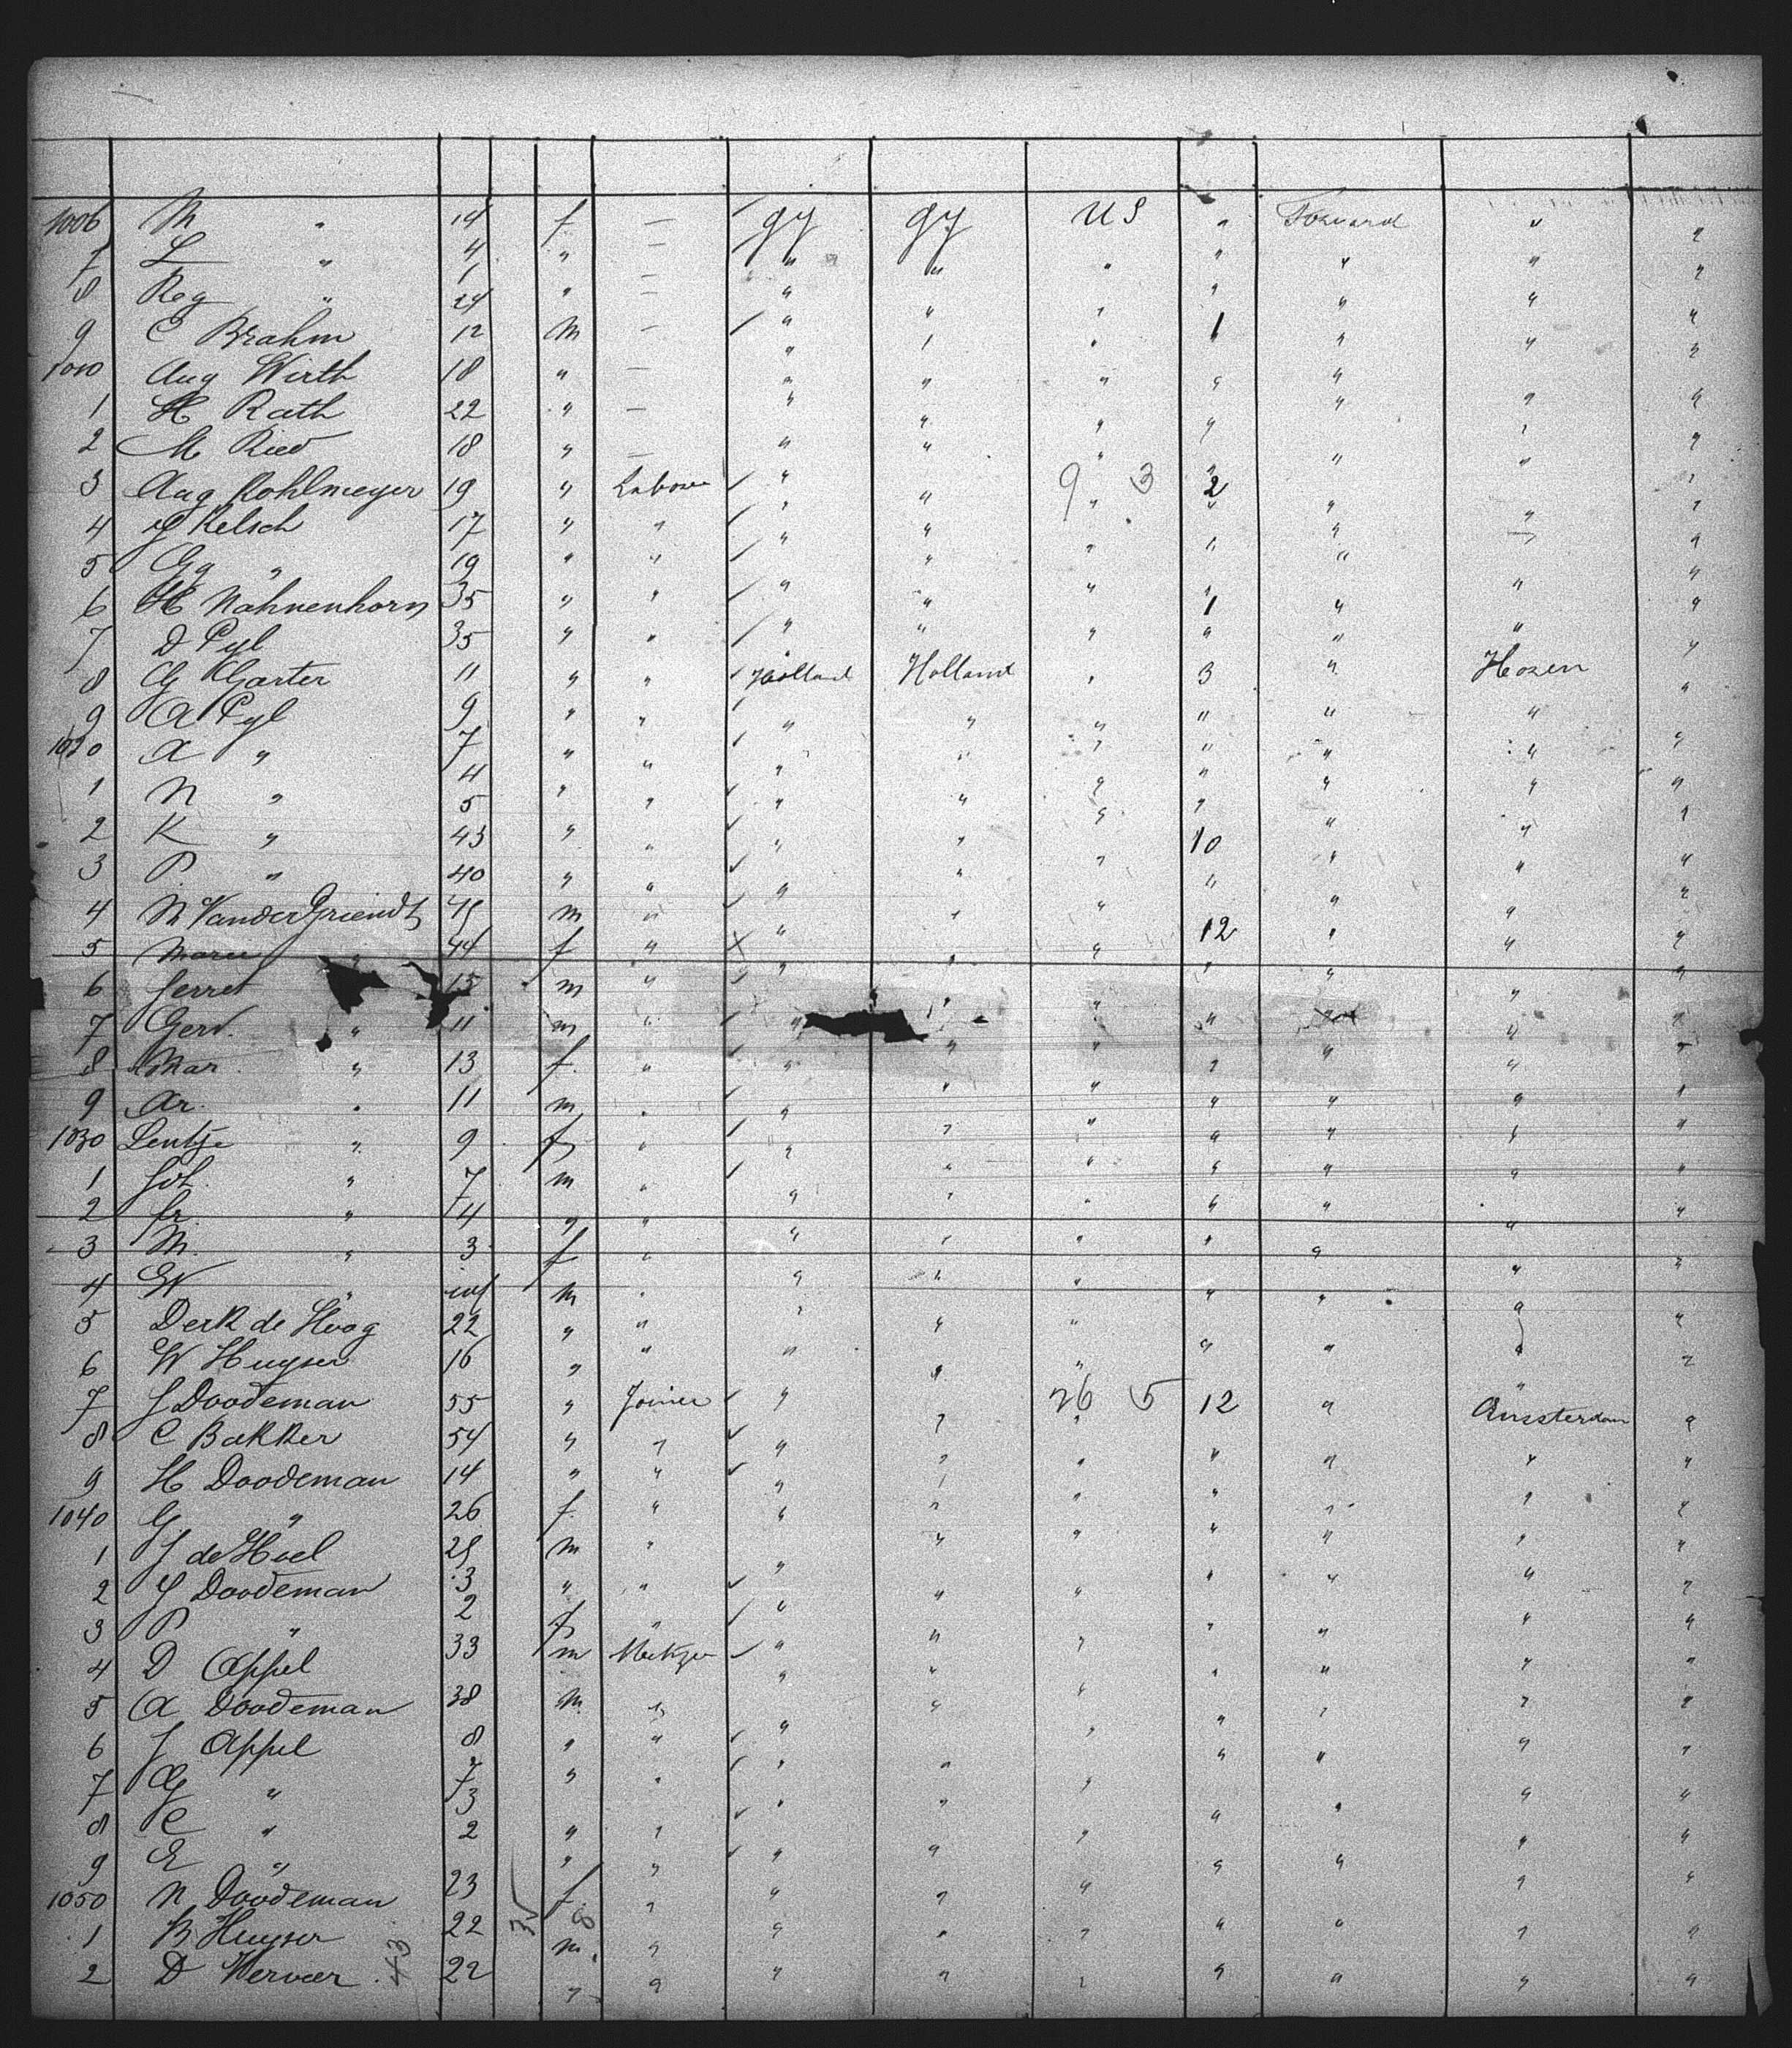 1006 M " 14 f — gy gy US " Forward " "
7 L " 4 " — " " " " " " "
8 Reg " 1 " — " " " " " " "
9 C Brahm 24 M — " " " 1 " " "
1010 Aug Wirth 12 " — " " " " " " "
1 H Rath 18 " — " " " " " " "
2 M Ried 22 " — " " " " " " "
3 Aug Kohlmeyer 19 " Laborer " " 9 3 2 " " "
4 J Kelsch 17 " " " " " " " " "
5 Gg " 19 " " " " " " " " "
6 H Nahnenhorn 35 " " " " " 1 " " "
7 D Pyl 35 " " " " " " " " "
8 G Garter 11 " " Holland Holland " 3 " Hosen "
9 A Pyl 9 " " " " " " " " "
1020 A " 7 " " " " " " " " "
1 N " 4 " " " " " " " " "
2 K " 5 " " " " " 10 " " "
3 P " 40 " " " " " " " " "
4 M VanderGriendt 45 m " " " " 12 " " "
5 Marie 44 f " " " " " " " "
6 Gerret 15 m " " " " " " " "
7 Gerd. " 11 m " " " " " " "
8 Mar. " 13 f. " " " " " " " "
9 Ar. " 11 m " " " " " " " "
1030 Lentje " 9 f " " " " " " " "
1 Joh. " 7 m " " " " " " " "
2 " 4 " " " " " " " " "
3 M. " 3 f " " " " " " " "
4 W " inf m " " " " " " " "
5 Derk de Hoog 22 " " " " " " " " "
6 W Huyser 16 " " " " " " " " "
7 J Doodeman 55 " Joiner " " 26 5 12 " Amsterdam "
8 C Bakker 54 " " " " " " " " "
9 H Doodeman 14 " " " " " " " " "
1040 G " 26 f. " " " " " " " "
1 J de Hoel 25 m " " " " " " " "
2 J Doodeman 3 " " " " " " " " "
3 P " 2 f " " " " " " " "
4 D Appel 33 m Metzger " " " " " " "
5 A Doodeman 38 m " " " " " " " "
6 J Appel 8 " " " " " " " " "
7 G " 7 " " " " " " " " "
8 C " 3 " " " " " " " " "
9 E " 2 " " " " " " " " "
1050 N Doodeman 23 f. " " " " " " " "
1 B Huyser 22 m " " " " " " " "
2 D Verveer 43 22 " " " " " " " " "